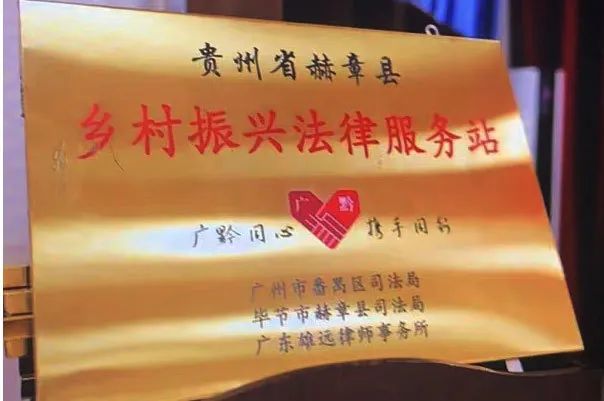 贵州省赫章县
乡村振兴法律服务站
广 黔
广黔同心 携手同行
广州市番禺区司法局
毕节市赫章县司法局
广东雄远律师事务所